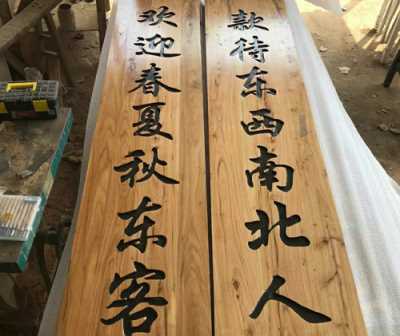 欢迎春夏秋东客
款待东西南北人